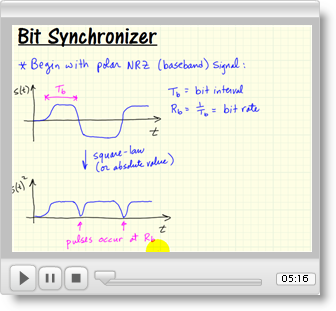 Bit Synchronizer
* Begin with polar NRZ (baseband) signal:
s(t)
Tb
Tb = bit interval
Rb = 1/Tb = bit rate
t
square-law
(or absolute value)
s(t)²
t
pulses occur at Rb
05:16